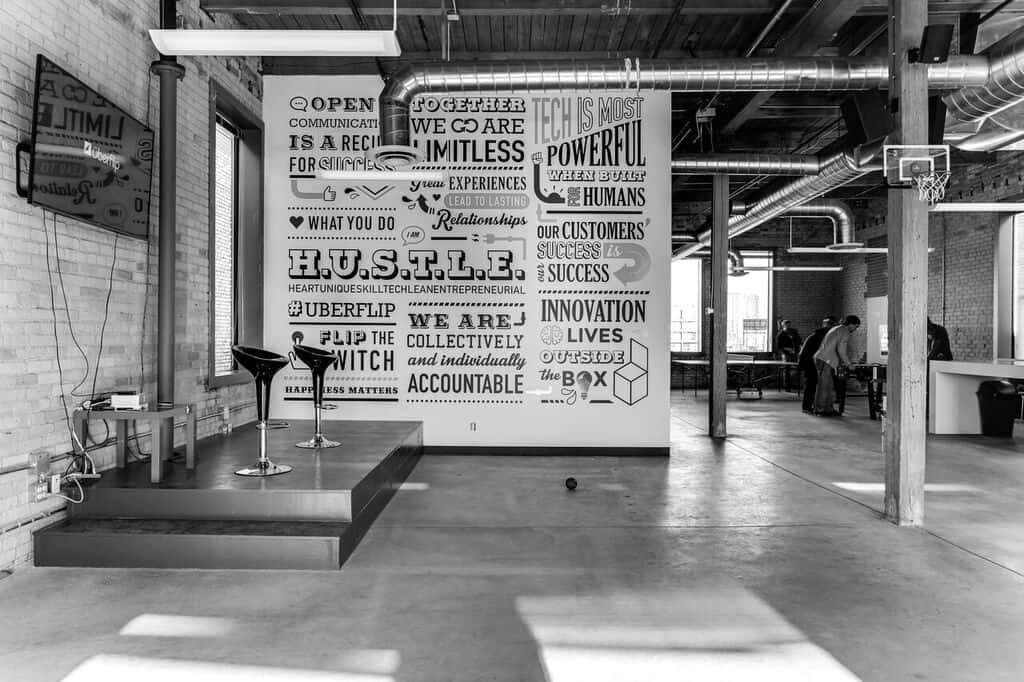 OPEN
COMMUNICATI
IS A RECI
FOR SUCCESS
WHAT YOU DO
I AM
H.U.S.T.L.E.
HEARTUNIQUESKILLTECHLEANENTREPRENEURIAL
#UBERFLIP
FLIP THE
WITCH
HAPPINESS MATTERS
TOGETHER
WE ARE
LIMITLESS
Great EXPERIENCES
LEAD TO LASTING
Relationships
WE ARE
COLLECTIVELY
and individually
ACCOUNTABLE
TECH IS MOST
POWERFUL
WHEN BUILT
FOR HUMANS
OUR CUSTOMERS'
SUCCESS is
our SUCCESS
INNOVATION
LIVES
OUTSIDE
the BOX
uberflip